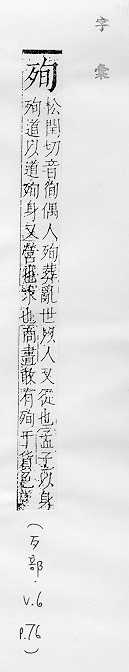 字彙
殉
松閏切音徇偶人殉葬亂世以人又從也孟子以身
殉道以道殉身又營也求也商書敢有殉于貨色
(歹部. v.6 p.76)